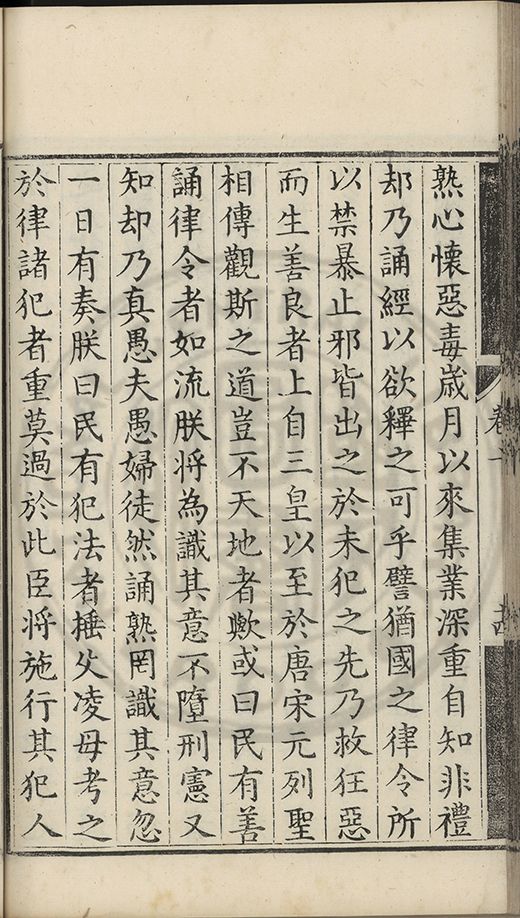 熟心懷惡毒歲月以來集業深重自知非禮
却乃誦經以欲釋之可乎譬猶國之律令所
以禁暴止邪皆出之於未犯之先乃救狂惡
而生善良者上自三皇以至於唐宋元列聖
相傳觀斯之道豈不天地者歟或曰民有善
誦律令者如流朕將為識其意不墮刑憲又
知却乃真愚夫愚婦徒然誦熟罔識其意忽
一日有奏朕曰民有犯法者捶父凌母考之
於律諸犯者重莫過於此臣將施行其犯人
卷十